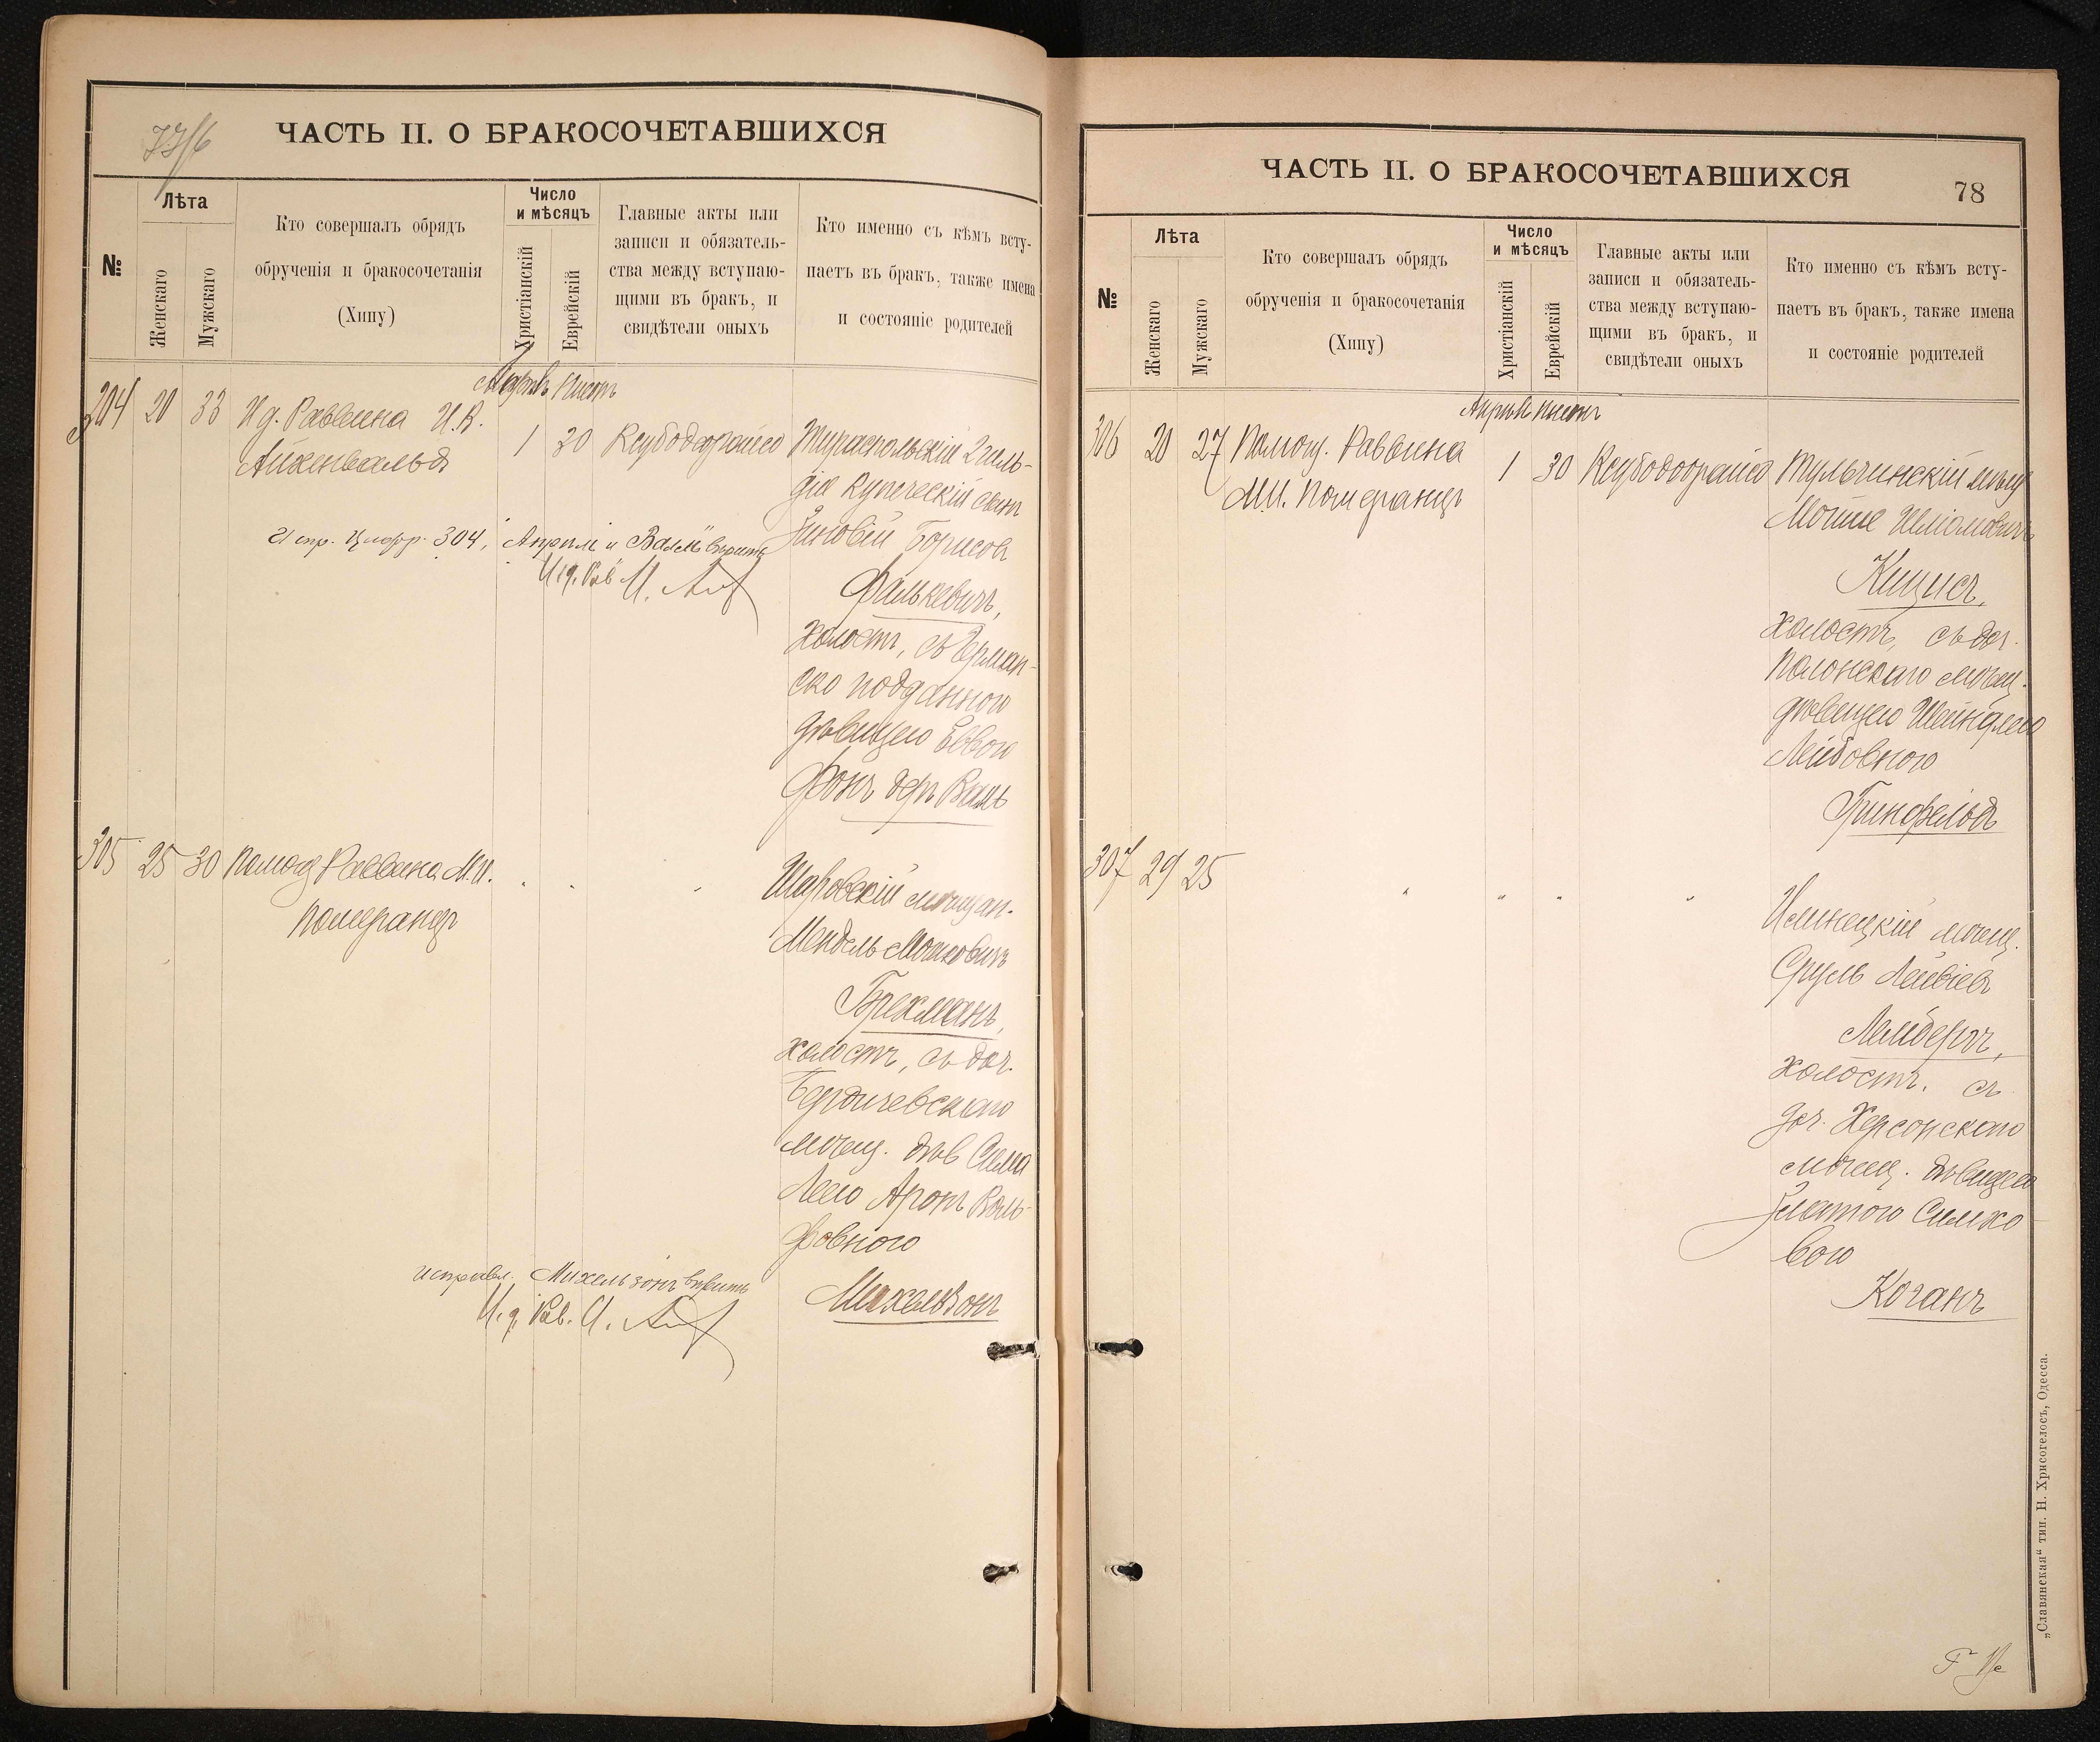 ЧАСТЬ II. О БРАКОСОЧЕТАВШИХСЯ
№
Лѣта
Женскаго
Мужскаго
Кто совершалъ обрядъ
обрученія и бракосочетанія
(Хипу)
Число
и мѣсяцъ
Христіанскій
Еврейскій
Главные акты или
записи и обязатель-
ства между вступаю-
щими въ бракъ, и
свидѣтели оныхъ
Кто именно съ кѣмъ всту-
паетъ въ бракъ, также имена
и состояніе родителей
304 20 33 И д. Раввина И. К.
Айхенвальдъ
1 30
Тираспольскій 2 гиль-
діи Купеческій сынъ
Зиновій Борисовъ
Фалькевичъ,
холостъ, съ Герман-
ско подданною
дѣвицею Еввою
Фонъ деръ Валь
Испр. Цифр. 304, Апрѣль и Валь вѣрить
И. д. Рав И.
305 25 30 Помощ Раввина М. И.
Померанцъ
Шаровскій мѣщан.
Мендель Мошковичъ
Брехманъ,
холостъ, съ доч.
Бердичевскаго
мѣщ. дѣв Сима
Леею Аронъ Воль-
фовною
Михельзонъ
исправл. Михельзонъ вѣрить
И. д. Рав. И.
ЧАСТЬ II. О БРАКОСОЧЕТАВШИХСЯ
78
№
Лѣта
Женскаго
Мужскаго
Кто совершалъ обрядъ
обрученія и бракосочетанія
(Хипу)
Число
и мѣсяцъ
Христіанскій
Еврейскій
Главные акты или
записи и обязатель-
ства между вступаю-
щими въ бракъ, и
свидѣтели оныхъ
Кто именно съ кѣмъ всту-
паетъ въ бракъ, также имена
и состояніе родителей
Апрѣль
306 20 27 Помощ. Раввина
М. И. Померанцъ
1 30
Тульчинскій мѣщ
Мойше
Кицисъ,
холостъ, съ доч.
Полонскаго мѣщ.
дѣвицею Шейндлею
Лейбовною
Гринфельдъ
307 29 25
Илинецкій мѣщ.
Сруль Лейвіевъ
Леинбергъ,
холостъ. съ
доч. Херсонскаго
мѣщ. дѣвицею
Златою Симхо-
вою
Коганъ
„Славянская“ тип. Н. Хрисогелосъ, Одесса.